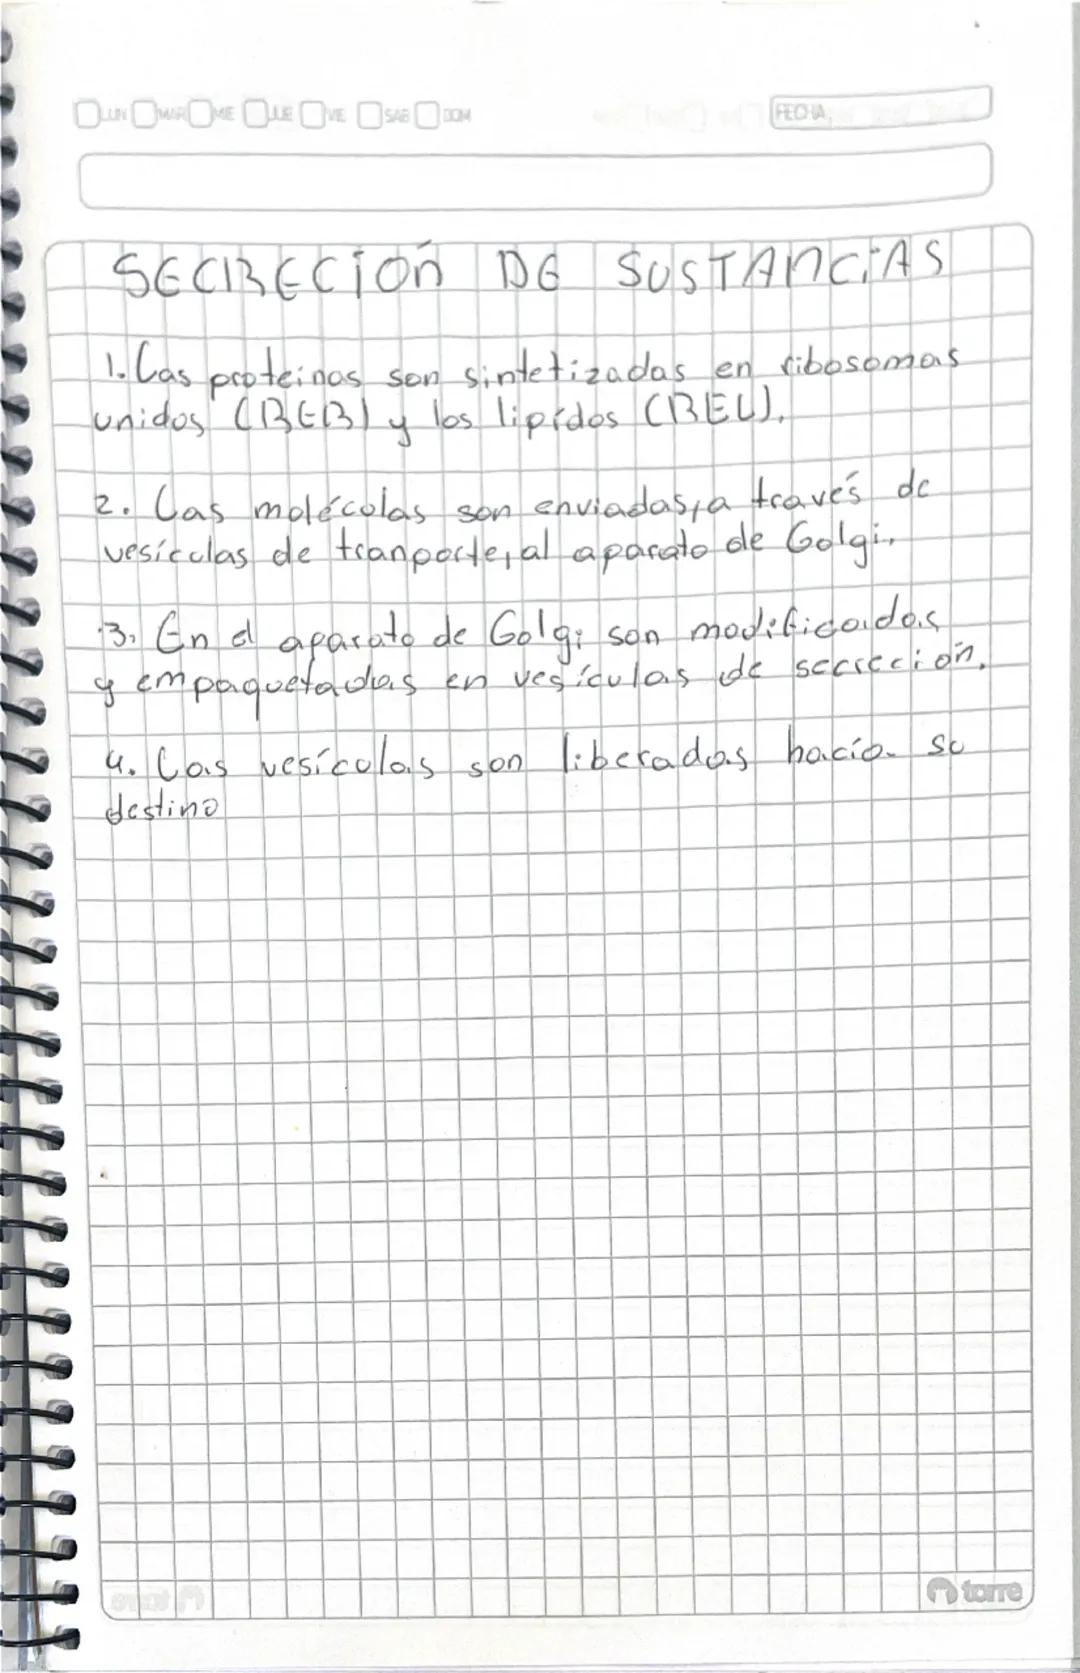 LUN MAR MIE JUE VIE SAB DOM FECHA
SECRECCIÓN DE SUSTANCIAS
1. Las proteinas son sintetizadas en ribosomas
unidos (RER) y los lipídos (REL).
2. Las molécolas son enviadas, a través de
vesículas de tranporte, al aparato de Golgi.
3. En el aparato de Golgi son modificadas
y empaquetadas en vesículas de secreción.
4. Las vesículas son liberadas hacia su
destino
torre